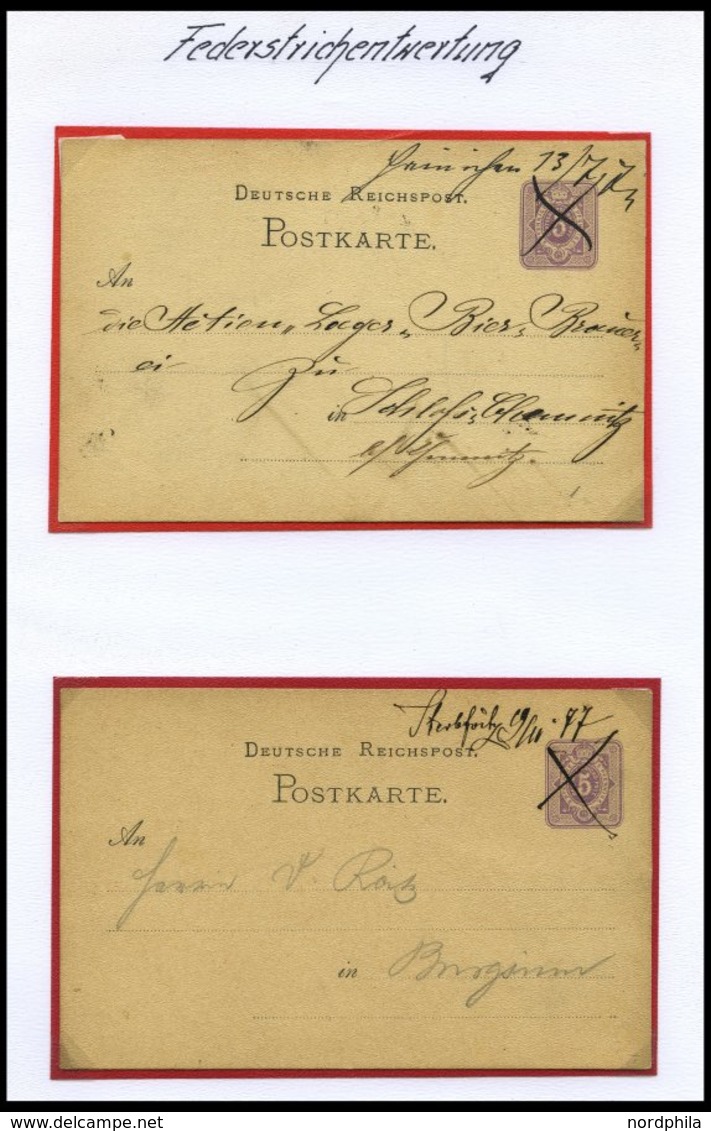 Federstrichentwertung
Hainichen 13/7.
DEUTSCHE REICHSPOST.
POSTKARTE.
5
An
die Actien„ Lager„ Bier„ Brauer„
ei zu
in Schloß„ Chemnitz
b/Chemnitz.
Sterbfritz 9/11. 77
DEUTSCHE REICHSPOST.
POSTKARTE.
5
An
Herrn
in Burgsinn
www.delcampe.net
nordphila